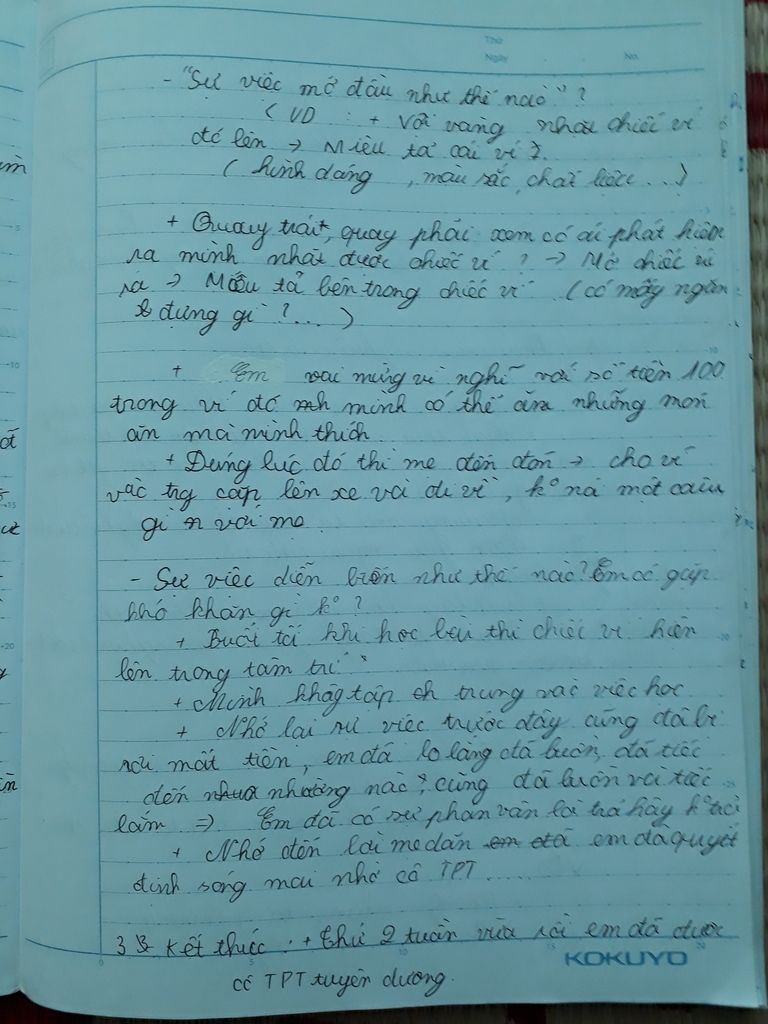 Thứ
Ngày No.
- "Sự việc mở đầu như thế nào"?
( VD : + Vội vàng nhặt chiếc ví
đó lên → Miêu tả cái ví ?.
( hình dáng , màu sắc, chất liệu ...)
+ Quay trái, quay phải xem có ai phát hiện
ra mình nhặt được chiếc ví ? → Mở chiếc ví
ra → Miêu tả bên trong chiếc ví (có mấy ngăn
& đựng gì ? ...)
+ Em vui mừng vì nghĩ với số tiền 100
trong ví đó mình có thể ăn những món
ăn mà mình thích
+ Đúng lúc đó thì mẹ đến đón → cho ví
vào cặp lên xe và đi về, k° nói một câu
gì với mẹ
- Sự việc diễn biến như thế nào? Em có gặp
khó khăn gì k° ?
+ Buổi tối khi học bài thì chiếc ví hiện
lên trong tâm trí
+ Mình không tập trung vào việc học
+ Nhớ lại sự việc trước đây cũng đã bị
rơi mất tiền, em đã lo lắng đã buồn, đã tiếc
đến nhường nào, cũng đã buồn và tiếc
lắm ⇒ Em đã có sự phân vân trả hay k° trả
+ Nhớ đến lời mẹ dặn em đã quyết
định sáng mai nhờ cô TPT ......
3 Kết thúc : + thứ 2 tuần vừa rồi em đã được
cô TPT tuyên dương.
KOKUYO